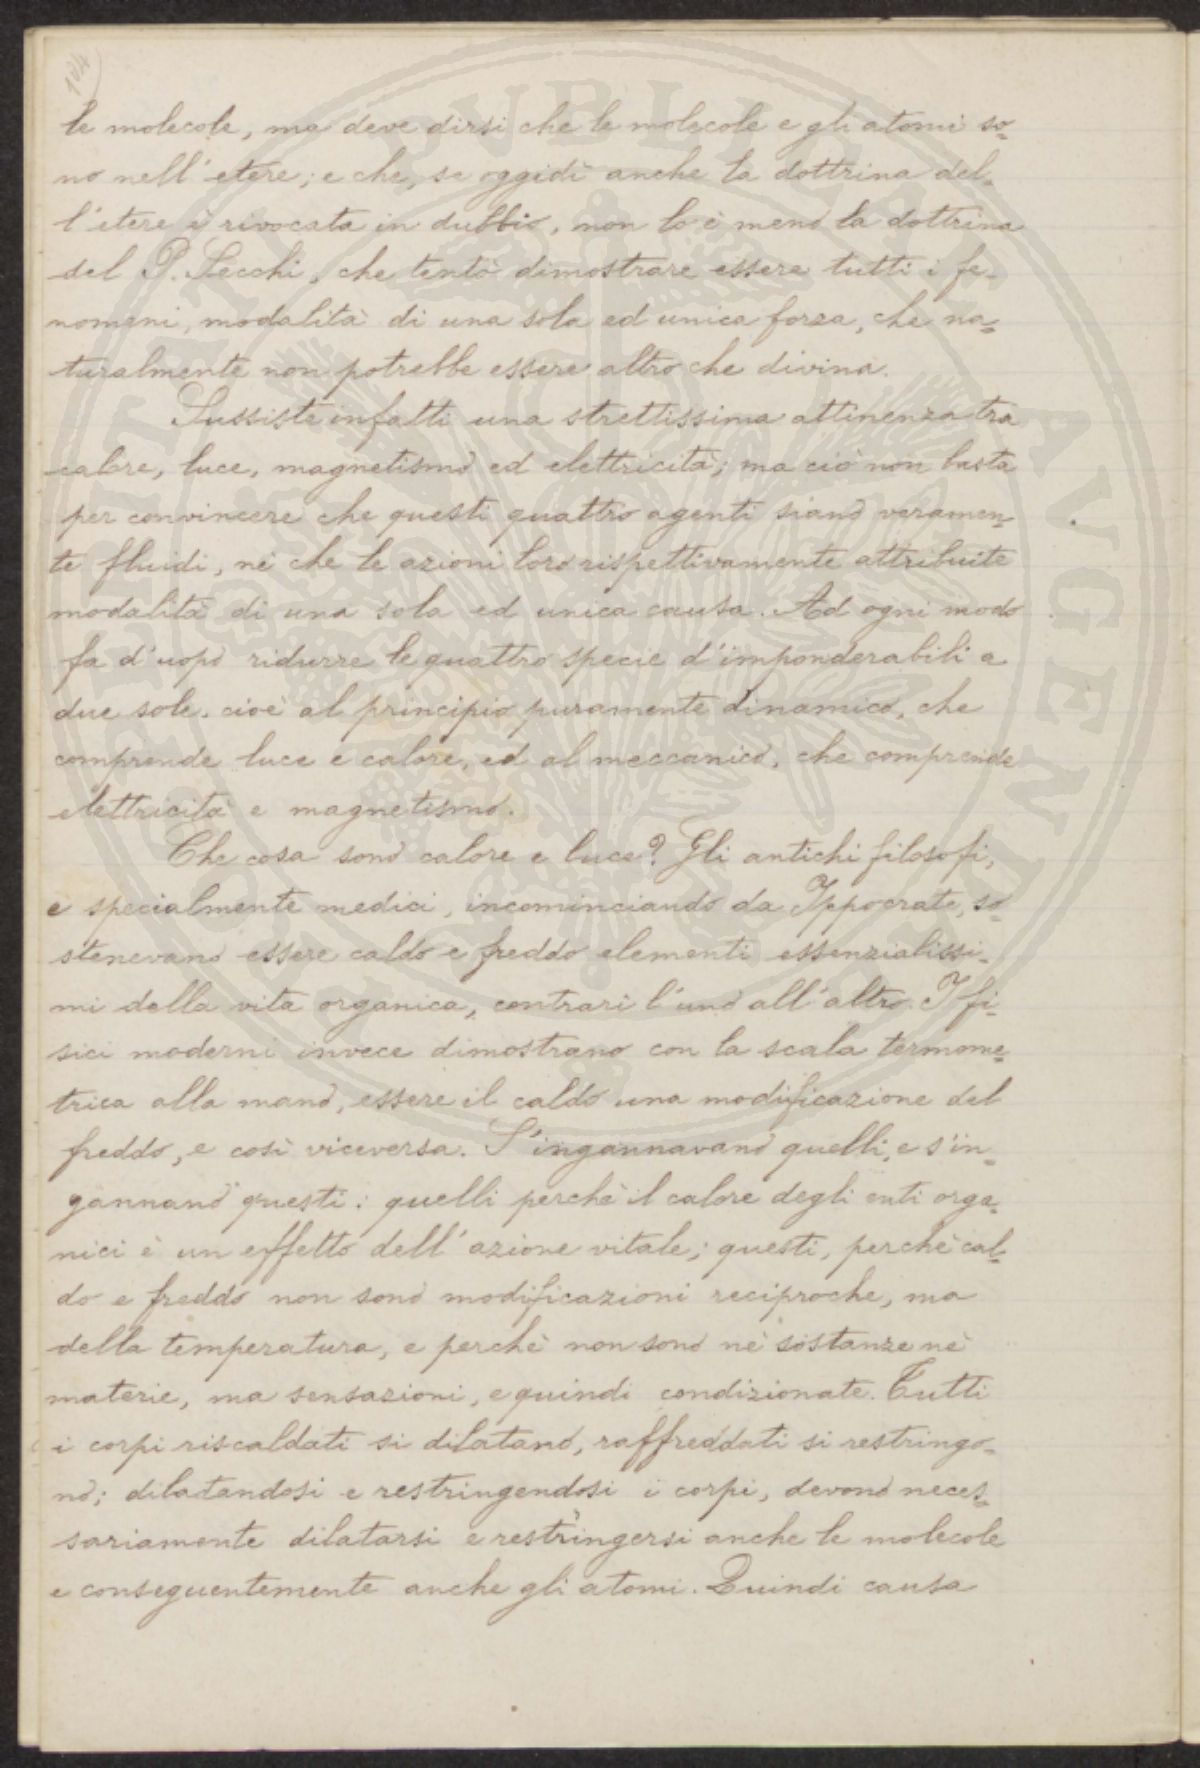 104
le molecole, ma deve dirsi che le molecole e gli atomi so-
no nell'etere; e che, se oggidì anche la dottrina del-
l'etere è rivocata in dubbio, non lo è meno la dottrina
del P. Secchi, che tentò dimostrare essere tutti i fe-
nomeni, modalità di una sola ed unica forza, che na-
turalmente non potrebbe essere altro che divina.
Sussiste infatti una strettissima attinenza tra
calore, luce, magnetismo ed elettricità; ma ciò non basta
per convincere che questi quattro agenti siano veramen-
te fluidi, nè che le azioni loro rispettivamente attribuite
modalità di una sola ed unica causa. Ad ogni modo
fa d'uopo ridurre le quattro specie d'imponderabili a
due sole, cioè al principio puramente dinamico, che
comprende luce e calore, ed al meccanico, che comprende
elettricità e magnetismo.
Che cosa sono calore e luce? Gli antichi filosofi,
e specialmente medici, incominciando da Ippocrate, so-
stenevano essere caldo e freddo elementi essenzialissi-
mi della vita organica, contrari l'uno all'altro. I fi-
sici moderni invece dimostrano con la scala termome-
trica alla mano, essere il caldo una modificazione del
freddo, e così viceversa. S'ingannavano quelli, e s'in-
gannano questi: quelli perchè il calore degli enti orga-
nici è un effetto dell'azione vitale; questi, perchè cal-
do e freddo non sono modificazioni reciproche, ma
della temperatura, e perchè non sono nè sostanze nè
materie, ma sensazioni, e quindi condizionate. Tutti
i corpi riscaldati si dilatano, raffreddati si restringo-
no; dilatandosi e restringendosi i corpi, devono neces-
sariamente dilatarsi e restringersi anche le molecole
e conseguentemente anche gli atomi. Quindi causa